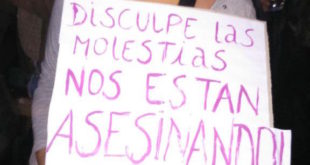 DISCULPE LAS
MOLESTIAS
NOS ESTAN
ASESINANDO!